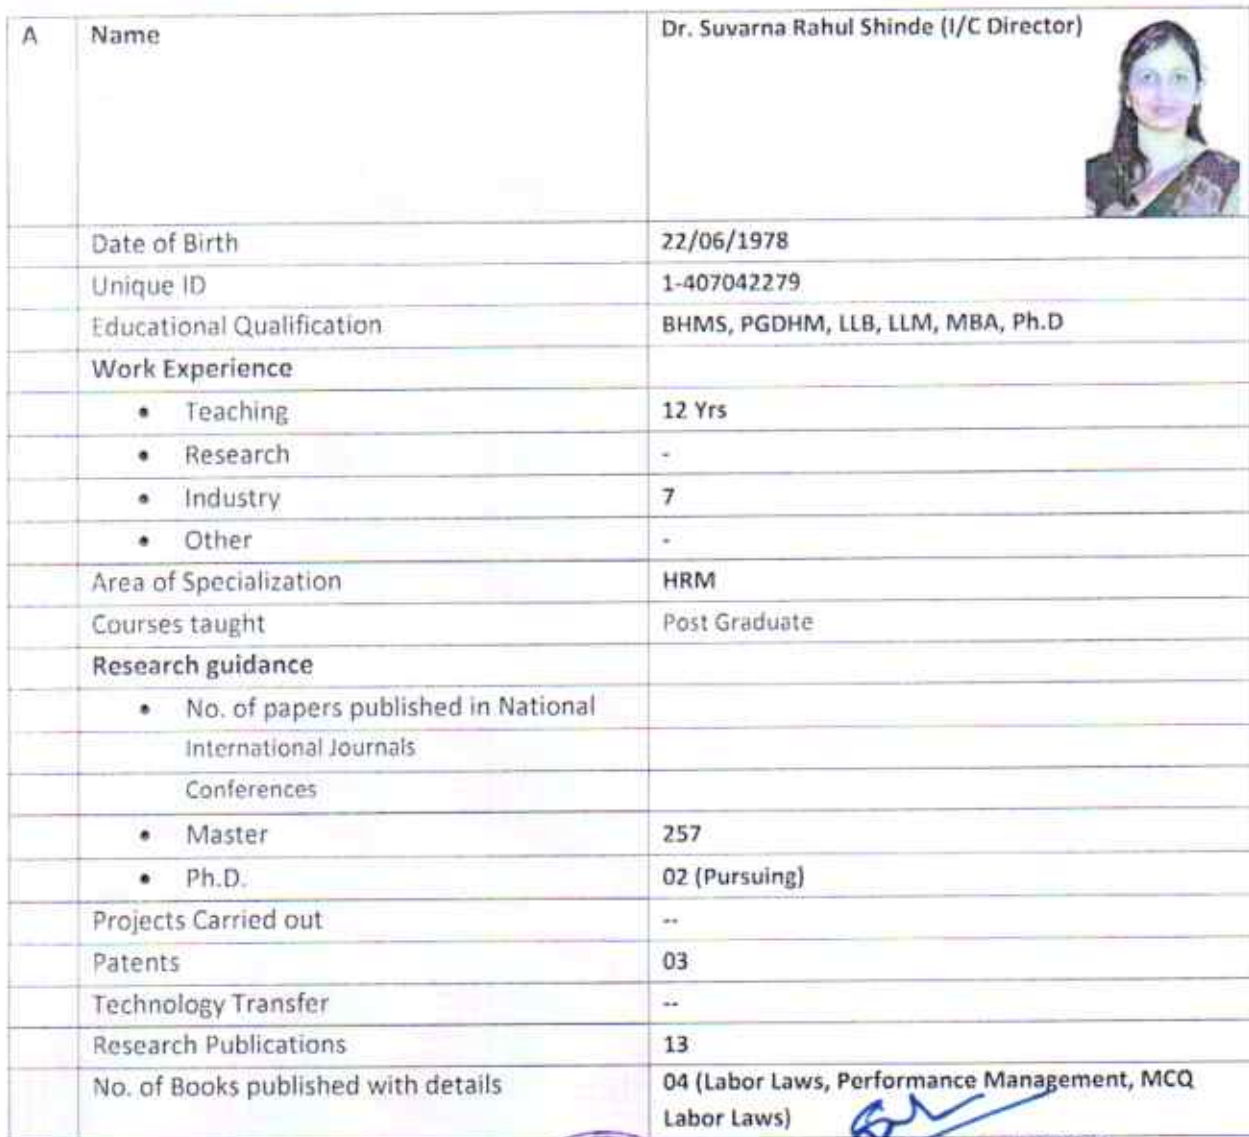 A Name Dr. Suvarna Rahul Shinde (I/C Director)
Date of Birth 22/06/1978
Unique ID 1-407042279
Educational Qualification BHMS, PGDHM, LLB, LLM, MBA, Ph.D
Work Experience
• Teaching 12 Yrs
• Research -
• Industry 7
• Other -
Area of Specialization HRM
Courses taught Post Graduate
Research guidance
• No. of papers published in National
International Journals
Conferences
• Master 257
• Ph.D. 02 (Pursuing)
Projects Carried out --
Patents 03
Technology Transfer --
Research Publications 13
No. of Books published with details 04 (Labor Laws, Performance Management, MCQ
Labor Laws)